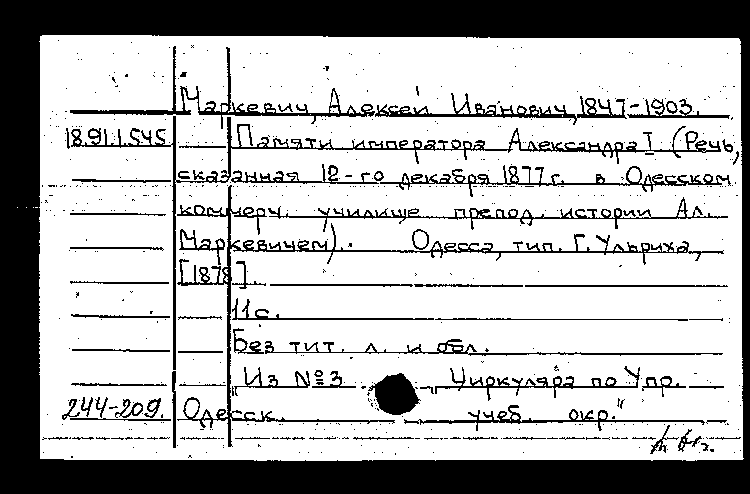 Маркевич, Алексей Иванович, 1847-1903.
18.91.1.545. Памяти императора Александра I (Речь,
сказанная 12-го декабря 1877 г. в Одесском
коммерч. училище препод. истории Ал.
Маркевичем). Одесса, тип. Г. Ульриха,
[1878].
11 с.
Без тит. л. и обл.
"Из №3 "Циркуляра по Упр.
244-209. Одесск. учеб. окр."